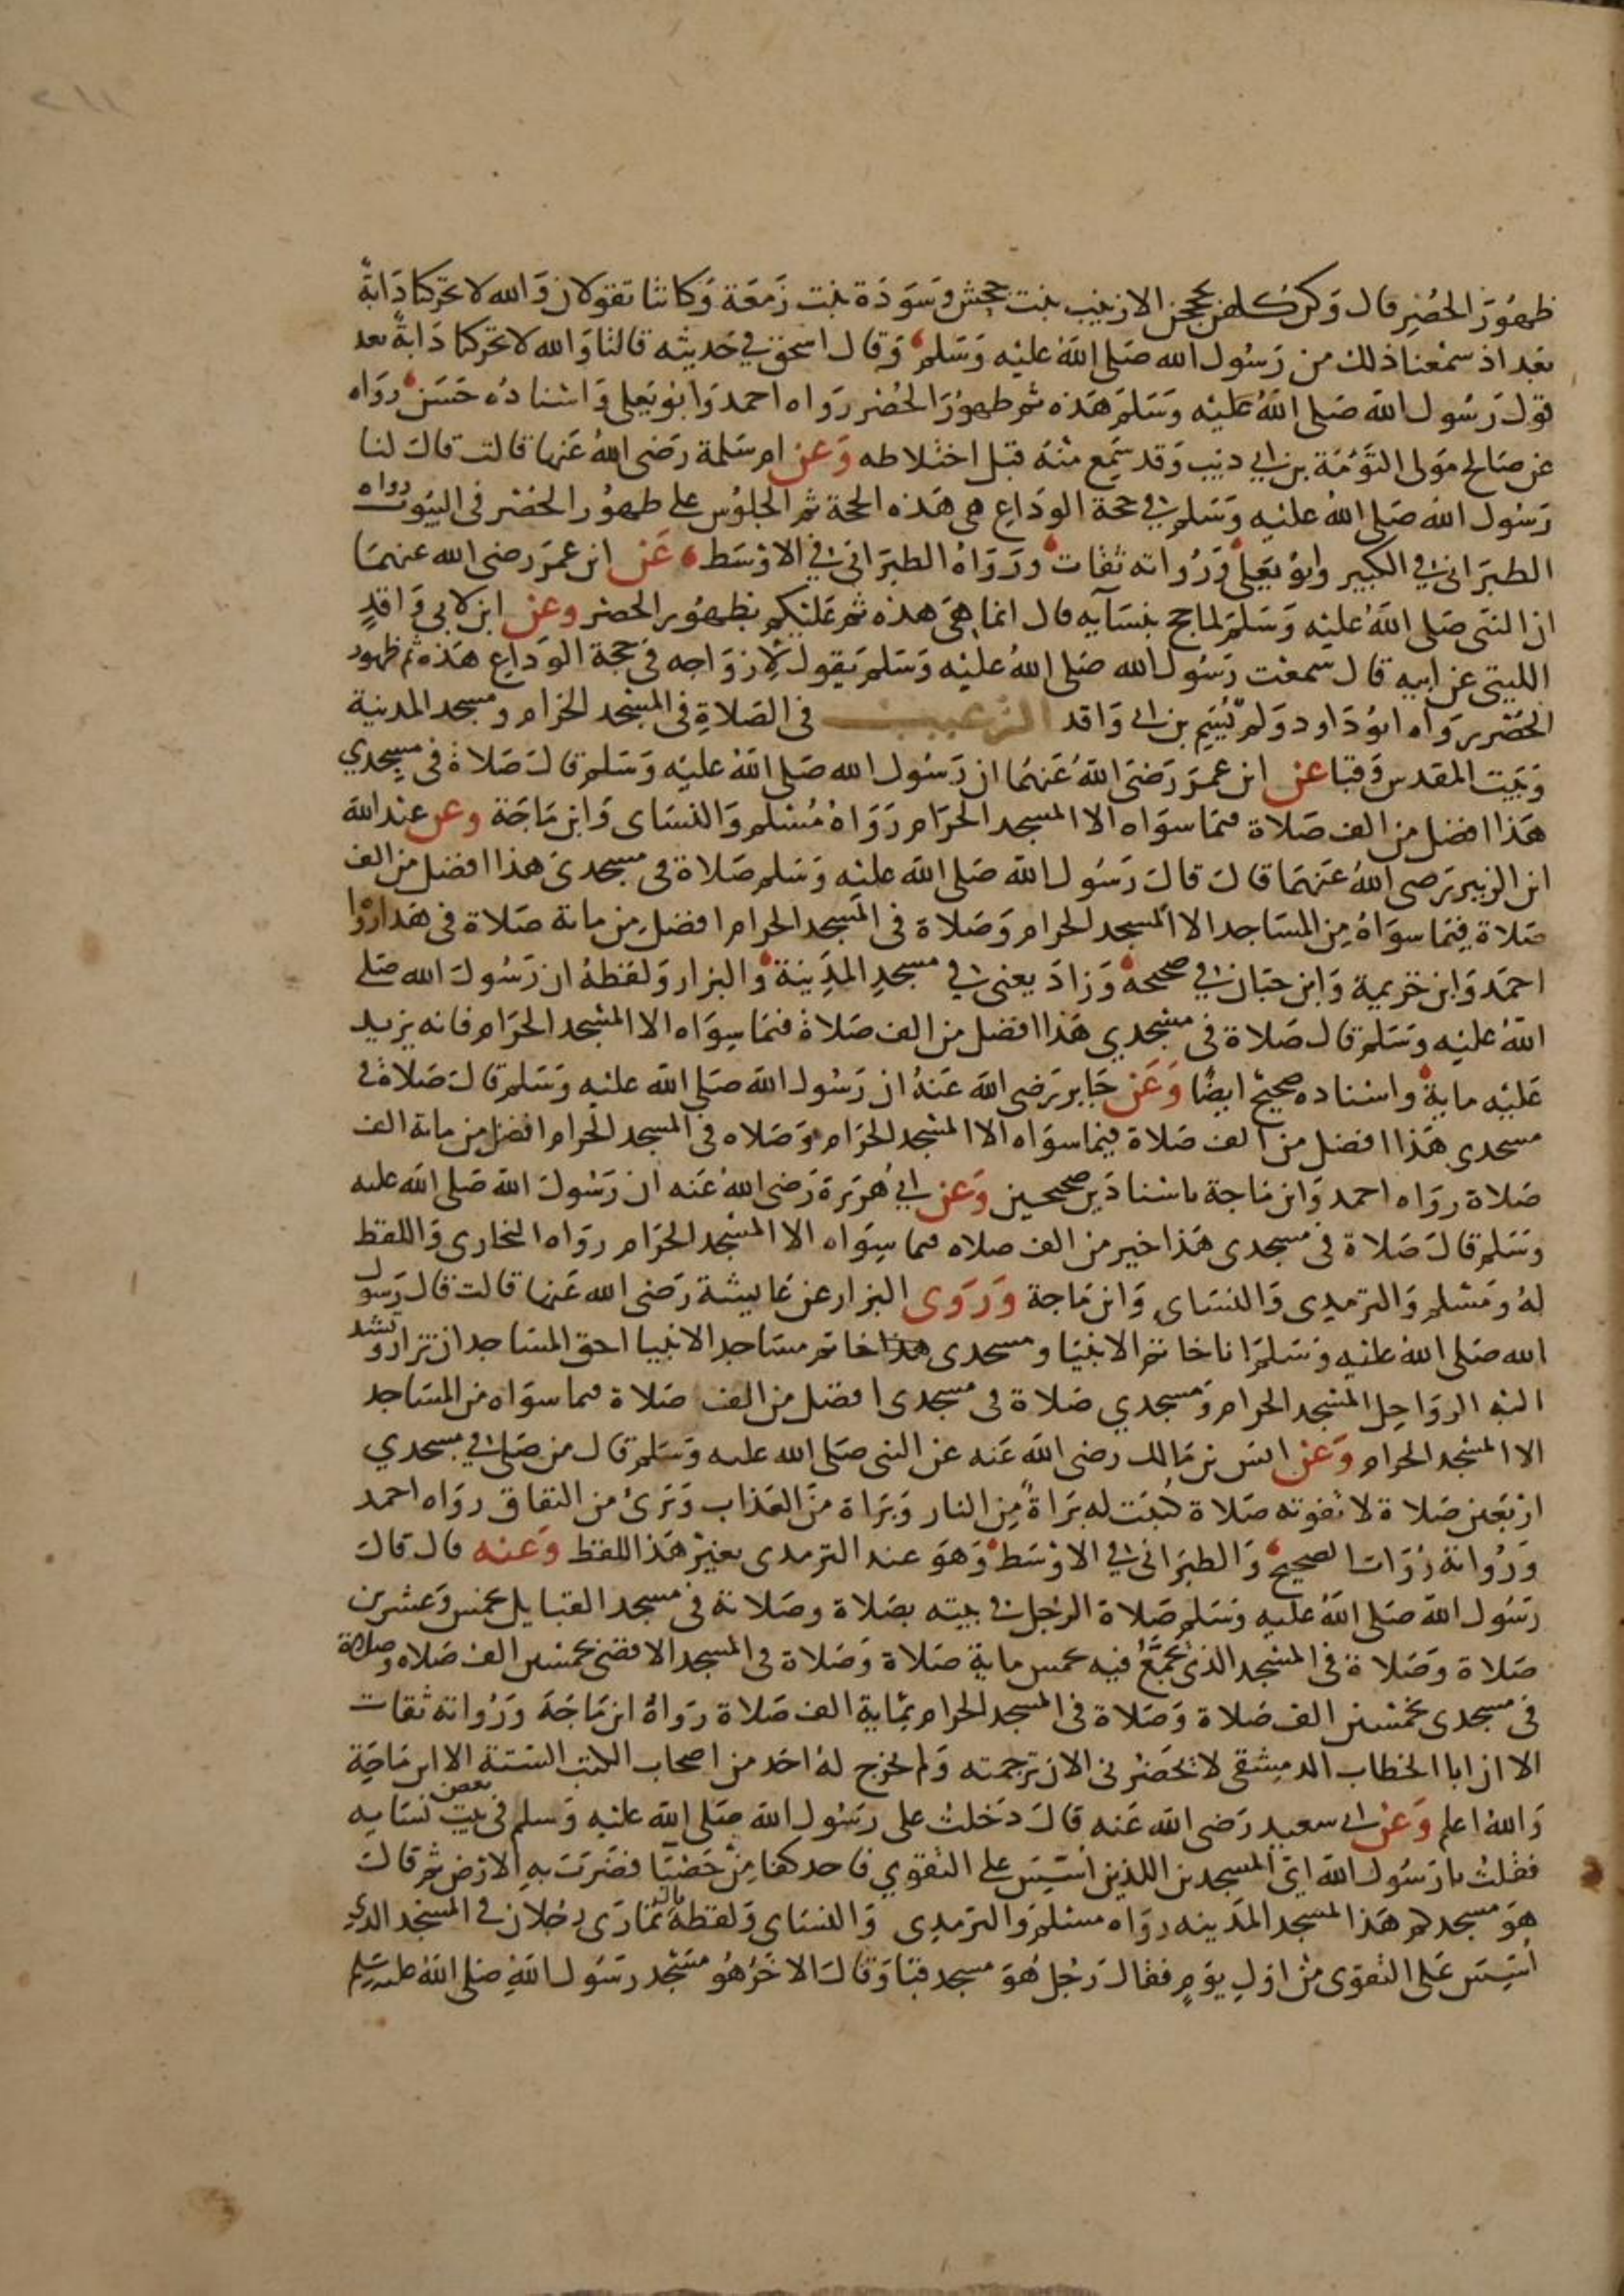 ظهور الحصر قال وكن كلهن يحججن الا زينب بنت جحش وسودة بنت زمعة وكانتا تقولان والله لا تحركنا دابة
بعد اذ سمعنا ذلك من رسول الله صلى الله عليه وسلم وقال اسحق في حديثه قالتا والله لا تحركنا دابة بعد
قول رسول الله صلى الله عليه وسلم هذه ثم ظهور الحصر رواه احمد وابو يعلى واسناده حسن رواه
عن صالح مولى التؤمة بن ابي ذيب وقد سمع منه قبل اختلاطه وعن ام سلمة رضى الله عنها قالت قال لنا
رسول الله صلى الله عليه وسلم في حجة الوداع هى هذه الحجة ثم الجلوس على ظهور الحصر فى البيوت رواه
الطبرانى في الكبير وابو يعلى ورواته ثقات ورواه الطبرانى في الاوسط عن ابن عمر رضى الله عنهما
ان النبى صلى الله عليه وسلم لما حج بنسآيه قال انما هى هذه ثم عليكم بظهور الحصر وعن ابن لابى واقد
الليثى عن ابيه قال سمعت رسول الله صلى الله عليه وسلم يقول لازواجه فى حجة الوداع هذه ثم ظهور
الحصر رواه ابو داود ولم يسم بن ابى واقد الترغيب فى الصلاة فى المسجد الحرام ومسجد المدينة
وبيت المقدس وقبا عن ابن عمر رضى الله عنهما ان رسول الله صلى الله عليه وسلم قال صلاة فى مسجدي
هذا افضل من الف صلاة فيما سواه الا المسجد الحرام رواه مسلم والنساى وابن ماجة وعن عبد الله
ابن الزبير رضى الله عنهما قال قال رسول الله صلى الله عليه وسلم صلاة فى مسجدى هذا افضل من الف
صلاة فيما سواه من المساجد الا المسجد الحرام وصلاة فى المسجد الحرام افضل من مائة صلاة فى هذا رواه
احمد وابن خزيمة وابن حبان في صحيحه وزاد يعنى في مسجد المدينة والبزار ولفظه ان رسول الله صلى
الله عليه وسلم قال صلاة فى مسجدي هذا افضل من الف صلاة فيما سواه الا المسجد الحرام فانه يزيد
عليه ماية واسناده صحيح ايضا وعن جابر رضى الله عنه ان رسول الله صلى الله عليه وسلم قال صلاة في
مسجدى هذا افضل من الف صلاة فيما سواه الا المسجد الحرام وصلاه فى المسجد الحرام افضل من مائة الف
صلاة رواه احمد وابن ماجة باسنادين صحيحين وعن ابي هريرة رضى الله عنه ان رسول الله صلى الله عليه
وسلم قال صلاة فى مسجدى هذا خير من الف صلاه فيما سواه الا المسجد الحرام رواه البخارى واللفظ
له ومسلم والترمدى والنساى وابن ماجة وروى البزار عن عايشة رضى الله عنها قالت قال رسول
الله صلى الله عليه وسلم انا خاتم الانبيا ومسجدى هذا خاتم مساجد الانبيا احق المساجد ان تزار وتشد
اليه الرواحل المسجد الحرام ومسجدي صلاة فى مسجدى افضل من الف صلاة فيما سواه من المساجد
الا المسجد الحرام وعن انس بن مالك رضى الله عنه عن النبى صلى الله عليه وسلم قال من صلى في مسجدي
اربعين صلاة لا تفوته صلاة كتبت له براة من النار وبراة من العذاب وبرئ من النفاق رواه احمد
ورواته روات الصحيح والطبرانى في الاوسط وهو عند الترمدى بغير هذا اللفظ وعنه قال قال
رسول الله صلى الله عليه وسلم صلاة الرجل في بيته بصلاة وصلاته فى مسجد القبايل بخمس وعشرين
صلاة وصلاة فى المسجد الذى يجمع فيه بخمس ماية صلاة وصلاة فى المسجد الاقصى بخمسين الف صلاه وصلاة
فى مسجدى بخمسين الف صلاة وصلاة فى المسجد الحرام بماية الف صلاة رواه ابن ماجة ورواته ثقات
الا ان ابا الخطاب الدمشقى لا تحضرنى الان ترجمته ولم يخرج له احد من اصحاب الكتب الستة الا ابن ماجة
والله اعلم وعن ابى سعيد رضى الله عنه قال دخلت على رسول الله صلى الله عليه وسلم فى بيت بعض نسايه
فقلت يا رسول الله اى المسجدين اللذين اسس على التقوي فاخد كفا من حصبا فضرب به الارض ثم قال
هو مسجدكم هذا لمسجد المدينه رواه مسلم والترمدى والنساى ولفظه تمارى رجلان في المسجد الدي
اسس على التقوى من اول يوم فقال رجل هو مسجد قبا وقال الاخر هو مسجد رسول الله صلى الله عليه وسلم